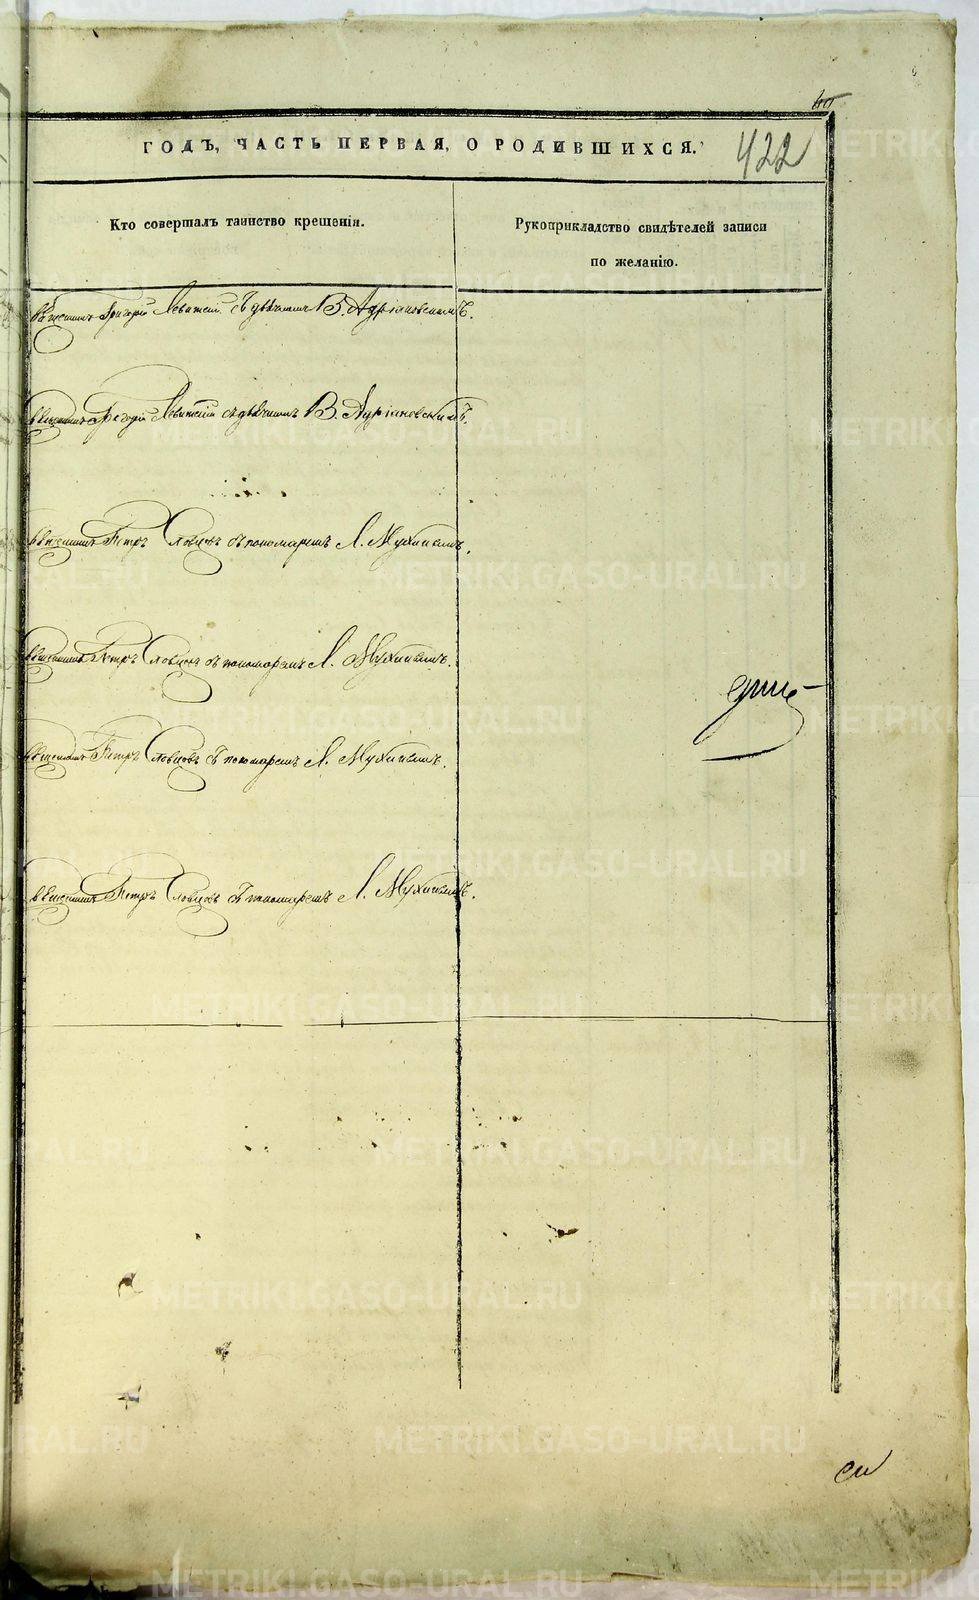 ГОДЪ, ЧАСТЬ ПЕРВАЯ, О РОДИВШИХСЯ.
422
Кто совершалъ таинство крещенія.
Рукоприкладство свидѣтелей записи
по желанію.
Григорій Левитскій съ дьячкомъ В. Адріановскимъ.
Григорій Левитскій съ дьячкомъ В. Адріановскимъ.
Петръ Словцовъ съ пономаремъ А. Мухинымъ.
Петръ Словцовъ съ пономаремъ А. Мухинымъ.
Петръ Словцовъ съ пономаремъ А. Мухинымъ.
Петръ Словцовъ съ пономаремъ А. Мухинымъ.
METRIKI.GASO-URAL.RU